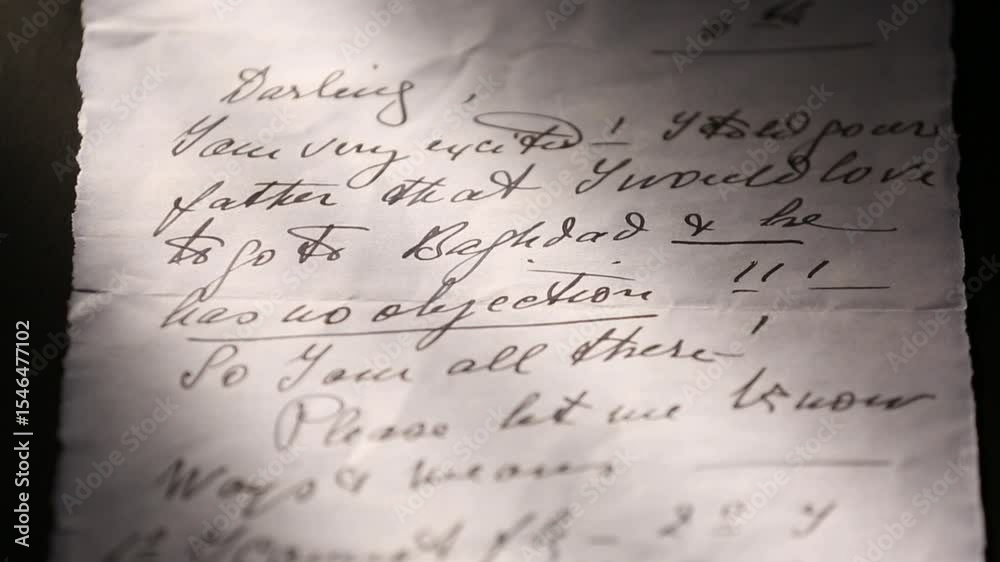 Darling,
I am very excited! I told your
father that I would love
to go to Baghdad & he
has no objection !!!
So I am all there!
Please let me know
Ways & means
Adobe Stock | #1546477102